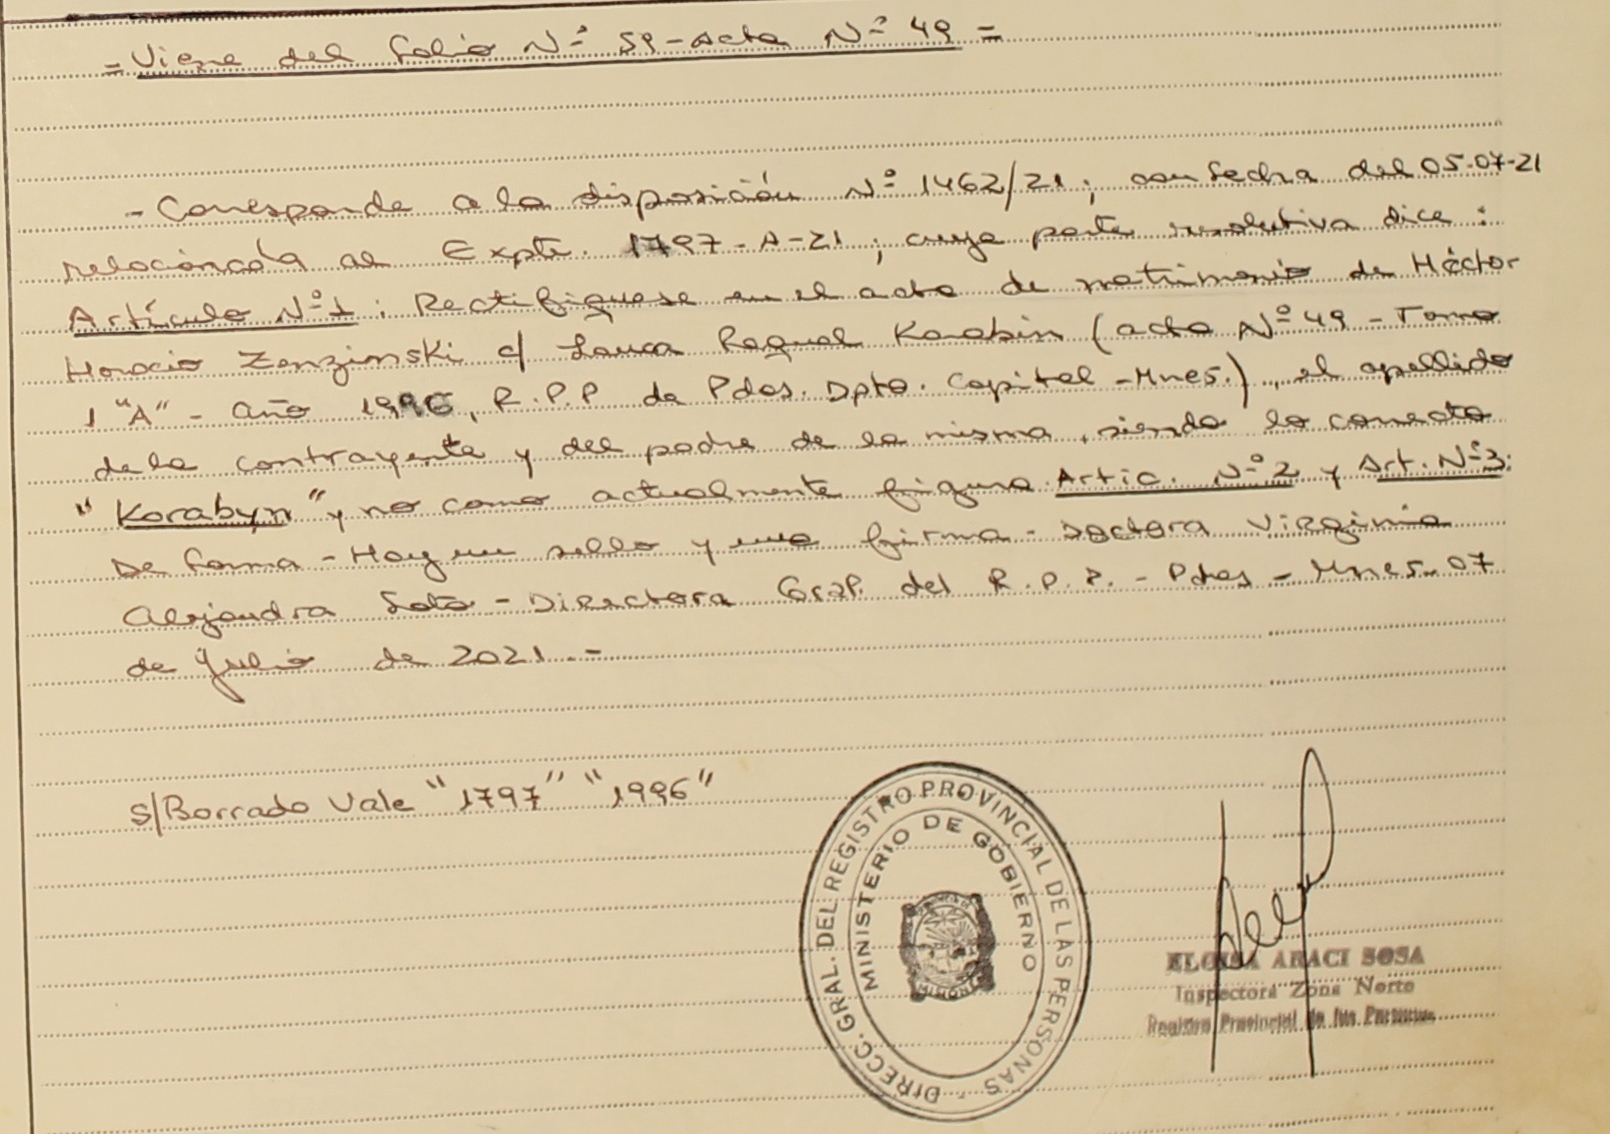 = Viene del folio Nº 59 - Acta Nº 49 =
- Corresponde a la disposición Nº 1462/21, con fecha del 05-07-21
relacionada al Expte. 1797-A-21, cuya parte resolutiva dice:
Artículo Nº 1: Rectifíquese en el acta de matrimonio de Héctor
Horacio Zenzinski c/ Laura Raquel Karabin (acta Nº 49 - Tomo
1 "A" - año 1996, R.P.P de Pdas. Dpto. Capital - Mnes.), el apellido
de la contrayente y del padre de la misma, siendo lo correcto
"Korabyn" y no como actualmente figura. Artic. Nº 2 y Art. Nº 3:
De forma - Hay un sello y una firma - Doctora Virginia
Alejandra Soto - Directora Gral. del R.P.P. - Pdas - Mnes. 07
de julio de 2021.-
s/Borrado Vale "1797" "1996"
DIRECC. GRAL. DEL REGISTRO PROVINCIAL DE LAS PERSONAS -
MINISTERIO DE GOBIERNO
MISIONES
ELOISA ARACI SOSA
Inspectora Zona Norte
Registro Provincial de las Personas